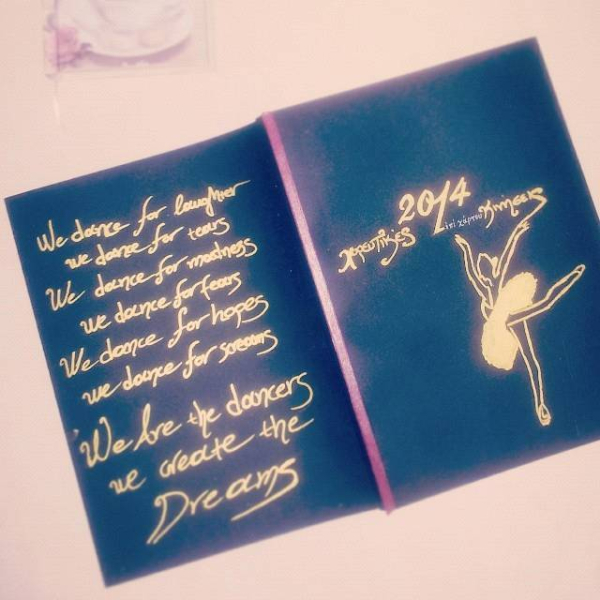 We dance for laughter
we dance for tears
We dance for madness
we dance for fears
We dance for hopes
we dance for screams
We are the dancers
we create the
Dreams
2014
χορευτικές επί χάρτου κινήσεις